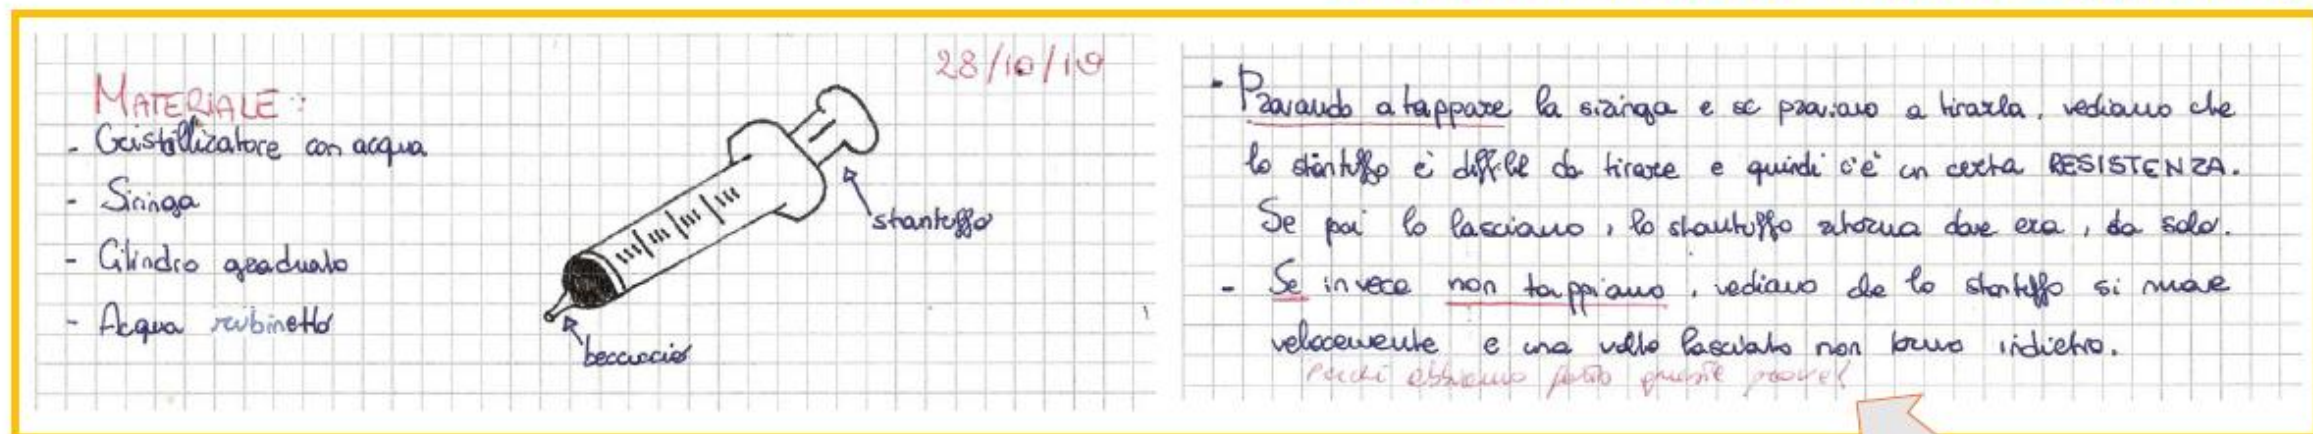 28/10/19
MATERIALE:
- Cristallizatore con acqua
- Siringa
- Cilindro graduato
- Acqua rubinetto
stantuffo
beccuccio
- Provando a tappare la siringa e se proviamo a tirarla, vediamo che
lo stantuffo è difficile da tirare e quindi c'è un certa RESISTENZA.
Se poi lo lasciamo, lo stantuffo ritorna dove era, da solo.
- Se invece non tappiamo, vediamo che lo stantuffo si muove
velocemente e una volta lasciato non torna indietro.
Perché abbiamo fatto queste prove?